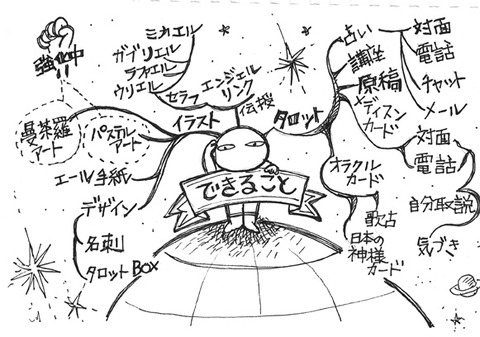 できること
強化中
曼荼羅
アート
パステル
アート
イラスト
セラフ
ミカエル
ガブリエル
ラファエル
ウリエル
エール手紙
デザイン
名刺
タロットBOX
伝授
エンジェル
リンク
タロット
占い
対面
電話
チャット
メール
講座
原稿
メディスン
カード
対面
電話
自分取説
気づき
オラクル
カード
歌占
日本の
神様
カード